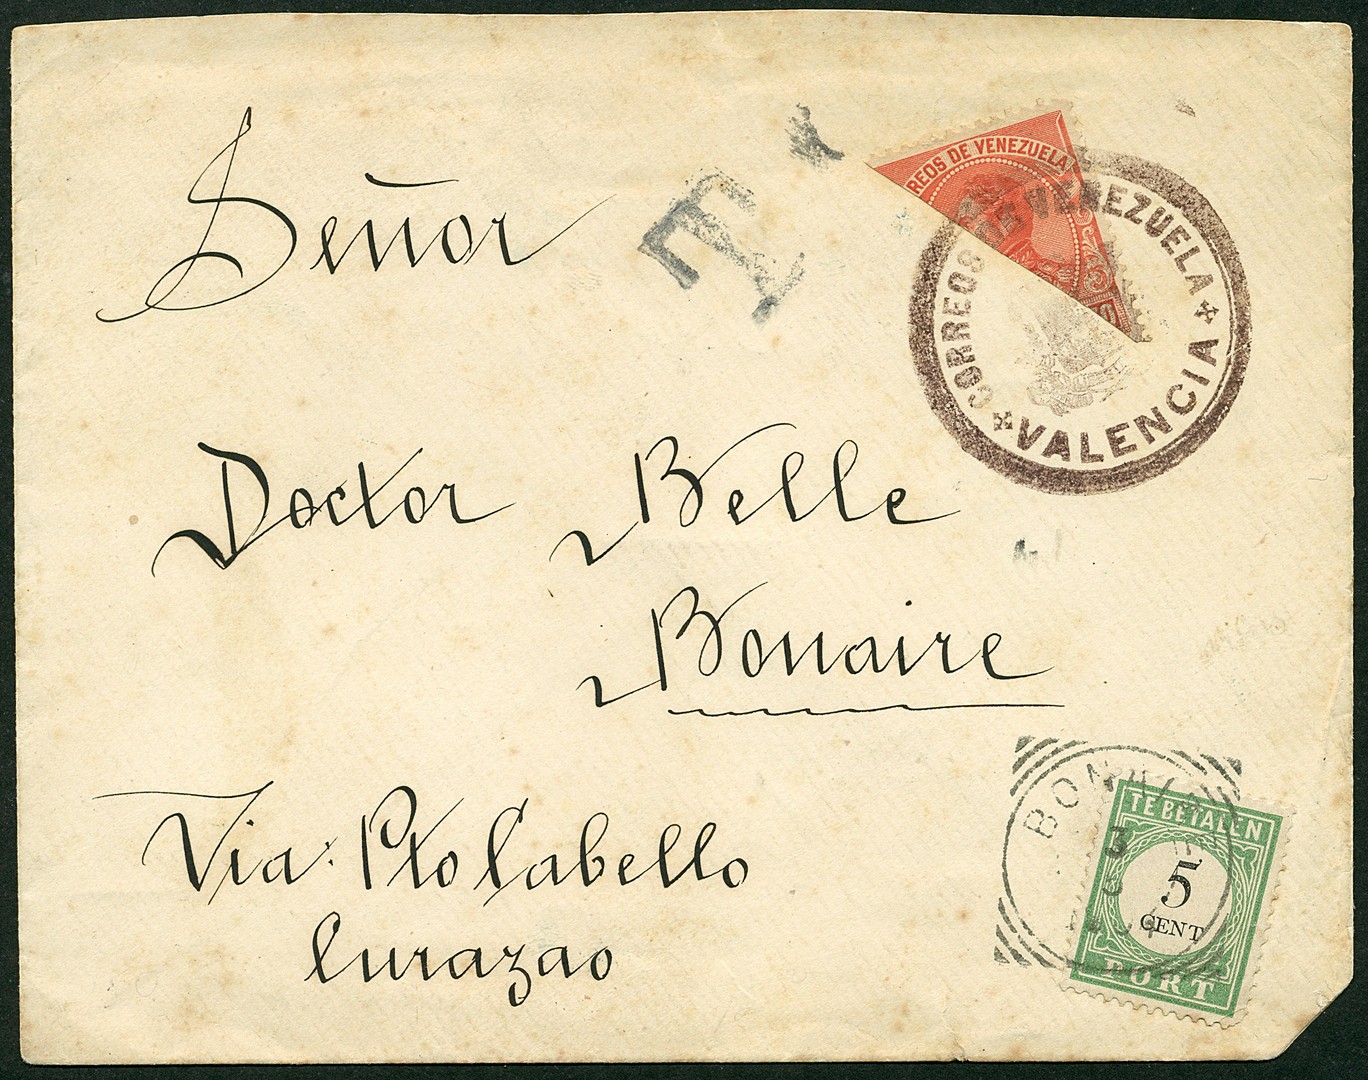 Señor
T
REOS DE VENEZUELA
CORREOS DE VENEZUELA
VALENCIA
Doctor Belle
Bonaire
Via: Pto Cabello
Curazao
BONAIRE
TE BETALEN
5
CENT
PORT